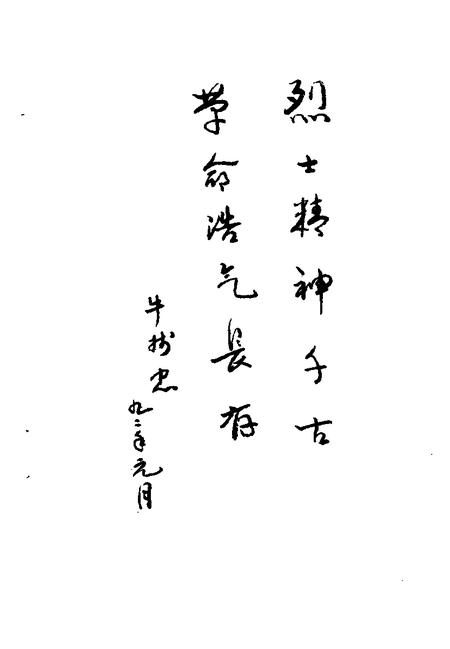 烈士精神千古
革命浩气長存
牛树忠
九二年元月